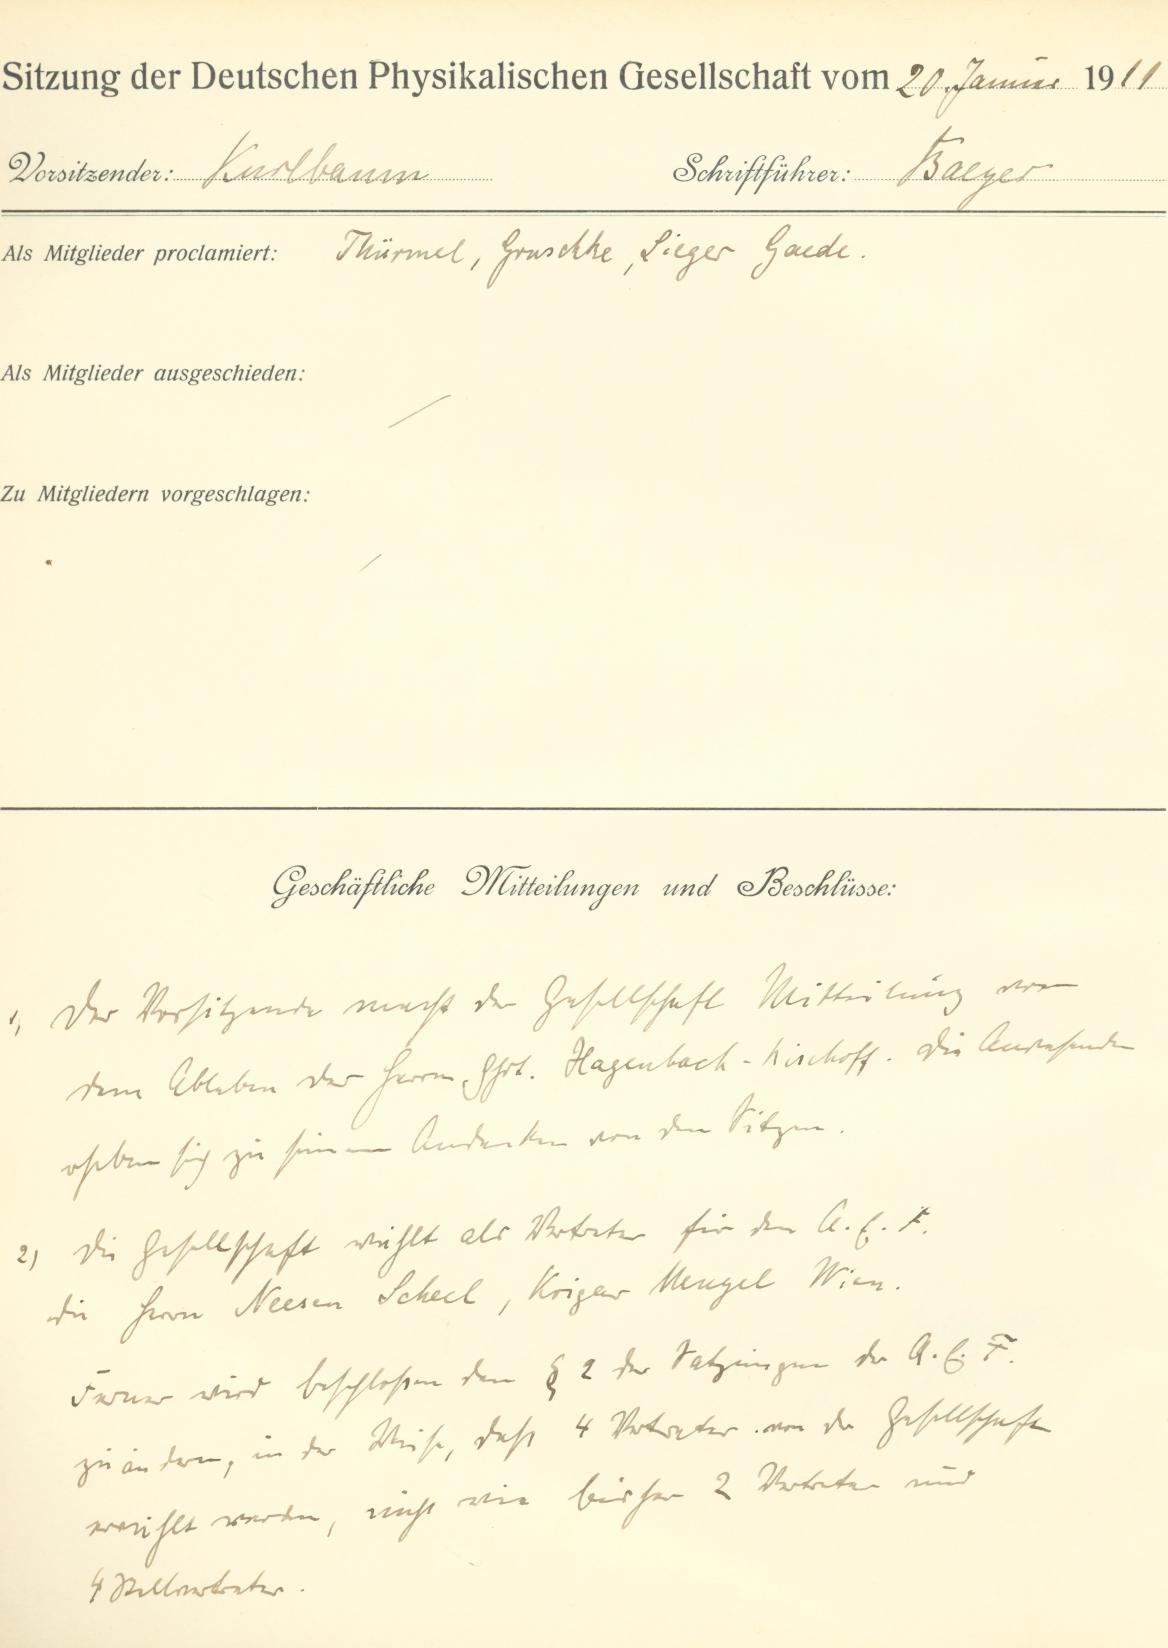 Sitzung der Deutschen Physikalischen Gesellschaft vom 20. Januar 1911
Vorsitzender: Kurlbaum Schriftführer: Baeyer
Als Mitglieder proclamiert: Thürmel, Gruschke, Lieger Gaede.
Als Mitglieder ausgeschieden:
Zu Mitgliedern vorgeschlagen:
Geschäftliche Mitteilungen und Beschlüsse:
1, Der Vorsitzende macht der Gesellschaft Mitteilung von
dem Ableben des Herrn Hagenbach-Bischoff. Die Anwesenden
erheben sich zu seinem Andenken von den Sitzen.
2) Die Gesellschaft wählt als Vertreter für den A. E. F.
die Herrn Neesen Scheel, Krigar Menzel Wien.
Ferner wird beschlossen den § 2 der Satzungen der A. E. F.
zu ändern, in der Weise, dass 4 Vertreter von der Gesellschaft
erwählt werden, nicht wie bisher 2 Vertreter und
4 Stellvertreter.